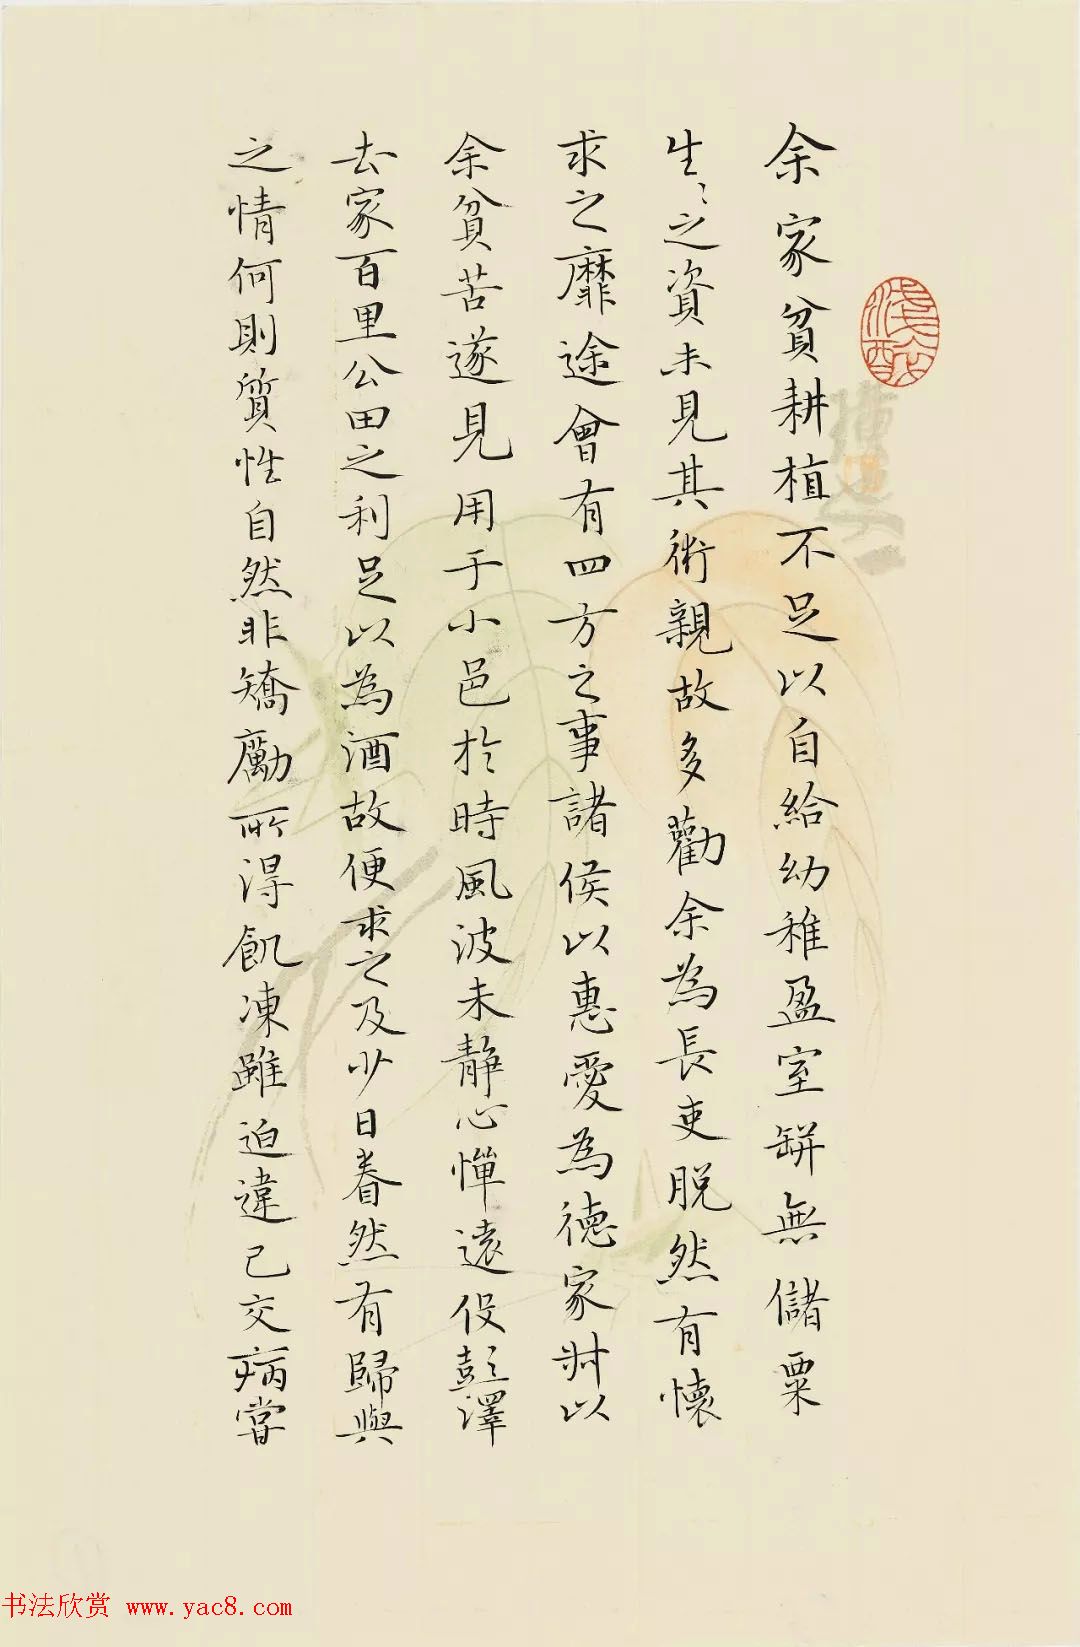 余家貧耕植不足以自給幼稚盈室缾無儲粟
生〻之資未見其術親故多勸余為長吏脫然有懷
求之靡途會有四方之事諸侯以惠愛為德家叔以
余貧苦遂見用于小邑於時風波未靜心憚遠役彭澤
去家百里公田之利足以為酒故便求之及少日眷然有歸與
之情何則質性自然非矯勵所得飢凍雖迫違己交病嘗
书法欣赏 www.yac8.com